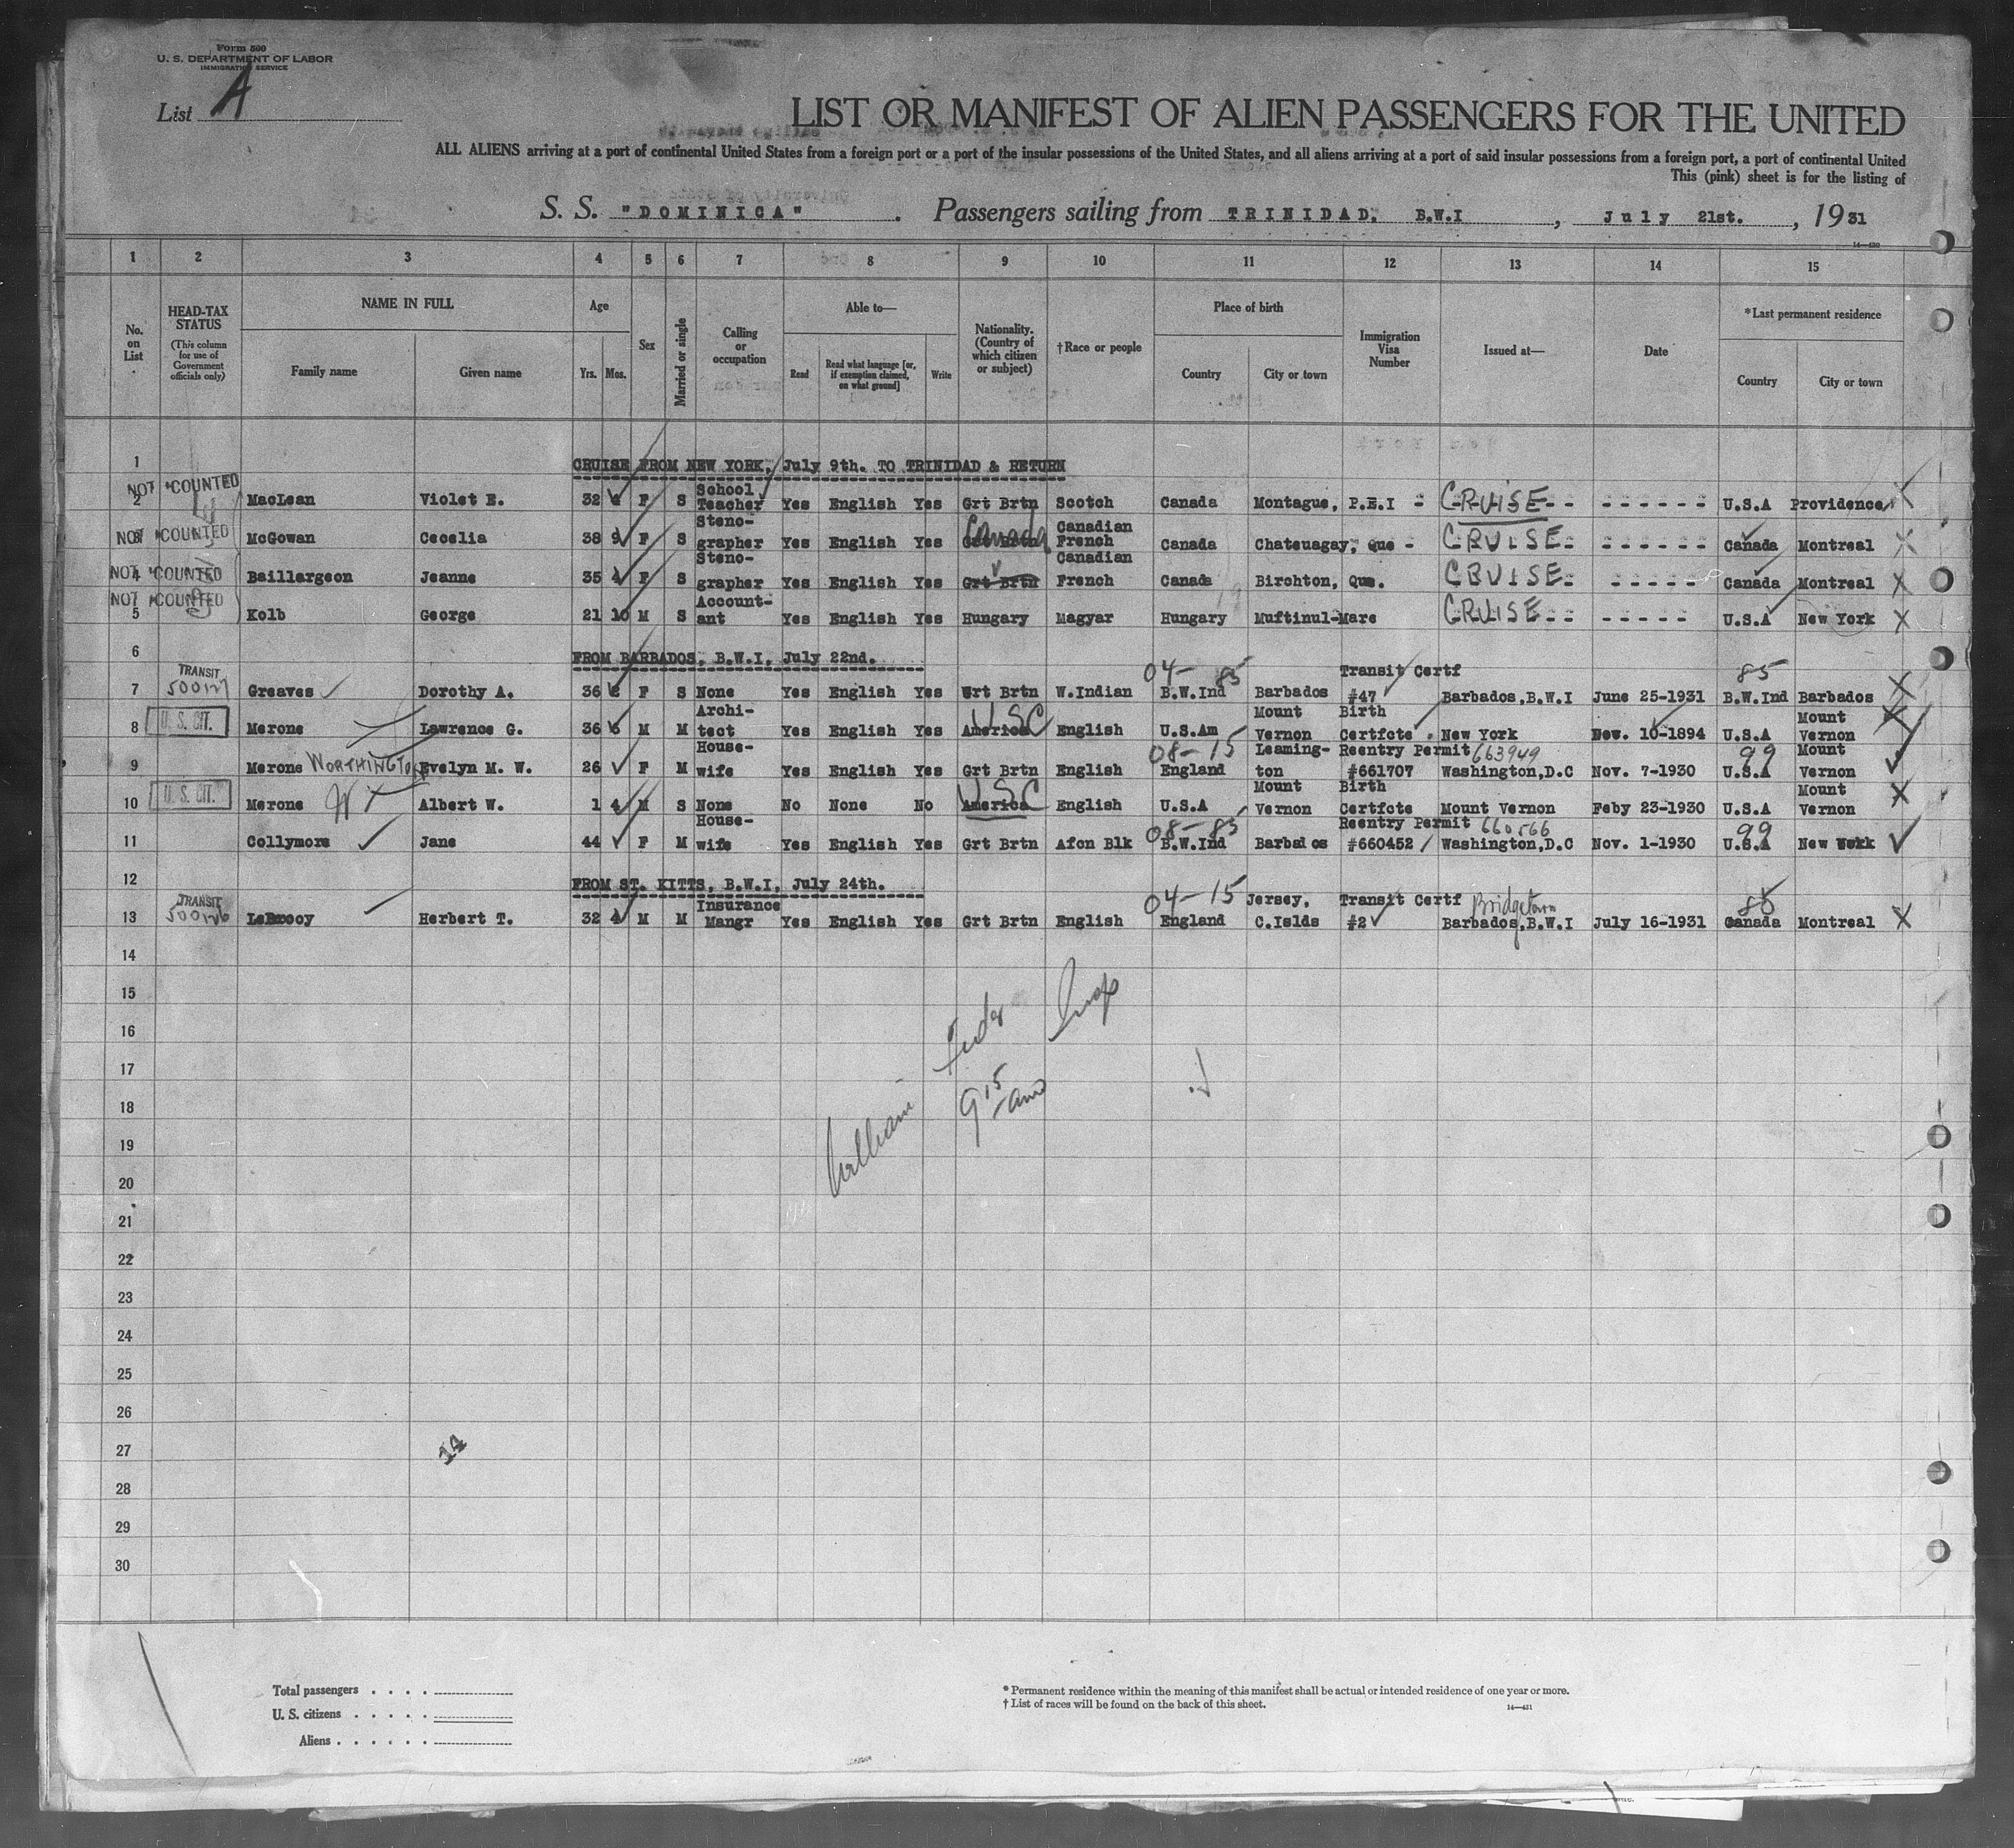 Form 500
U. S. DEPARTMENT OF LABOR
IMMIGRATION SERVICE
List A
LIST OR MANIFEST OF ALIEN PASSENGERS FOR THE UNITED
ALL ALIENS arriving at a port of continental United States from a foreign port or a port of the insular possessions of the United States, and all aliens arriving at a port of said insular possessions from a foreign port, a port of continental United
This (pink) sheet is for the listing of
S. S. "DOMINICA" . Passengers sailing from TRINIDAD, B.W.I , July 21st. , 1931
14—430
1 2 3 4 5 6 7 8 9 10 11 12 13 14 15
No. on List
HEAD-TAX STATUS
(This column for use of Government officials only)
NAME IN FULL
Family name Given name
Age
Yrs. Mos.
Sex
Married or single
Calling or occupation
Able to—
Read
Read what language [or, if exemption claimed, on what ground]
Write
Nationality. (Country of which citizen or subject)
†Race or people
Place of birth
Country City or town
Immigration Visa Number
Issued at—
Date
*Last permanent residence
Country City or town
1 CRUISE FROM NEW YORK, July 9th. TO TRINIDAD & RETURN
2 NOT COUNTED MacLean Violet E. 32 F S School Teacher Yes English Yes Grt Brtn Scotch Canada Montague, P.E.I - CRUISE - - - - - - - - U.S.A Providence X
3 NOT COUNTED McGowan Cecelia 38 9 F S Steno-grapher Yes English Yes Grt Brtn Canada Canadian French Canada Chateuagay, Que - CRUISE - - - - - - - Canada Montreal X
4 NOT COUNTED Baillargeon Jeanne 35 4 F S Steno-grapher Yes English Yes Grt Brtn Canadian French Canada Birchton, Que. CRUISE - - - - - - Canada Montreal X
5 NOT COUNTED Kolb George 21 10 M S Account-ant Yes English Yes Hungary Magyar Hungary Muftinul-Mare CRUISE - - - - - - - U.S.A New York X
6 FROM BARBADOS, B.W.I, July 22nd.
7 TRANSIT 500127 Greaves Dorothy A. 36 2 F S None Yes English Yes Grt Brtn W.Indian 04-85 B.W.Ind Barbados Transit Certf #47 Barbados,B.W.I June 25-1931 85 B.W.Ind Barbados X
8 U. S. CIT. Merone Lawrence G. 36 M M Archi-tect Yes English Yes America USC English U.S.Am Mount Vernon Birth Certfcte. New York Nov. 10-1894 U.S.A Mount Vernon X
9 Merone WORTHINGTON Evelyn M. W. 26 F M House-wife Yes English Yes Grt Brtn English 08-15 England Leaming-ton Reentry Permit 663949 #661707 Washington,D.C Nov. 7-1930 99 U.S.A Mount Vernon
10 U. S. CIT. Merone W Albert W. 1 4 M S None No None No America USC English U.S.A Mount Vernon Birth Certfcte Mount Vernon Feby 23-1930 U.S.A Mount Vernon X
11 Collymore Jane 44 F M House-wife Yes English Yes Grt Brtn Afcn Blk 08-85 B.W.Ind Barbados Reentry Permit 660566 #660452 Washington,D.C Nov. 1-1930 99 U.S.A New York
12 FROM ST. KITTS, B.W.I, July 24th.
13 TRANSIT 500126 LeBrocy Herbert T. 32 4 M M Insurance Mangr Yes English Yes Grt Brtn English 04-15 England Jersey, C.Islds Transit Certf #2 Bridgetown Barbados,B.W.I July 16-1931 Canada Montreal X
14
15
16
17
18
19
20
21
22
23
24
25
26
27
28
29
30
William
9 15 am
14
Total passengers . . . .
U. S. citizens . . . . .
Aliens . . . . . .
* Permanent residence within the meaning of this manifest shall be actual or intended residence of one year or more.
† List of races will be found on the back of this sheet.
14—431